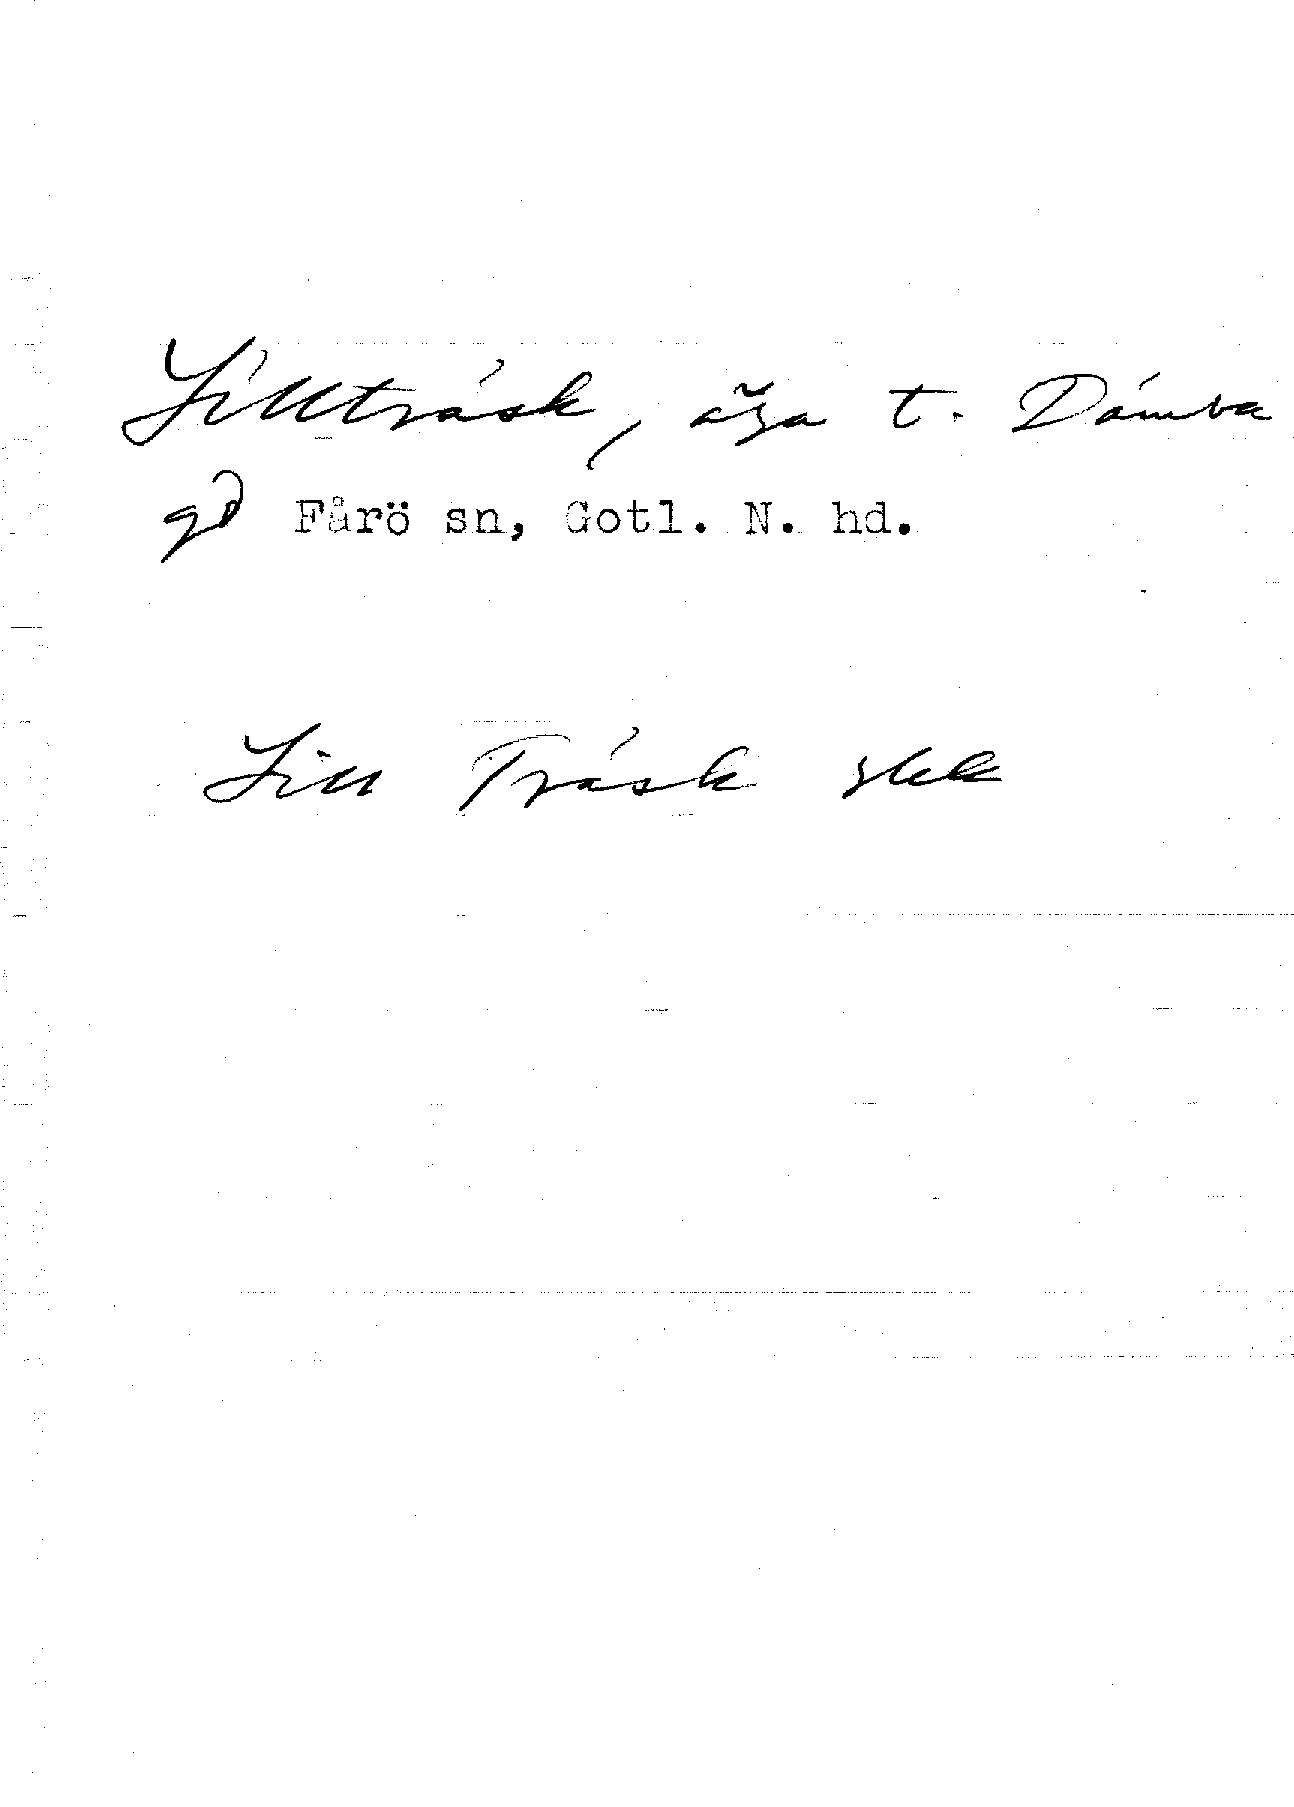 Lillträsk, äga t. Dämba
gd Fårö sn, Gotl. N. hd.
Lill Träsk